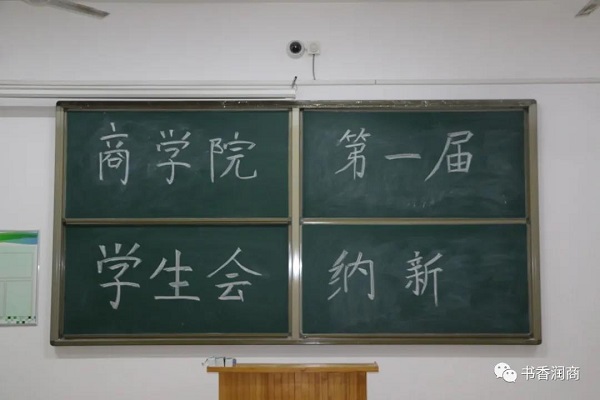 商学院 第一届
学生会 纳新
书香润商